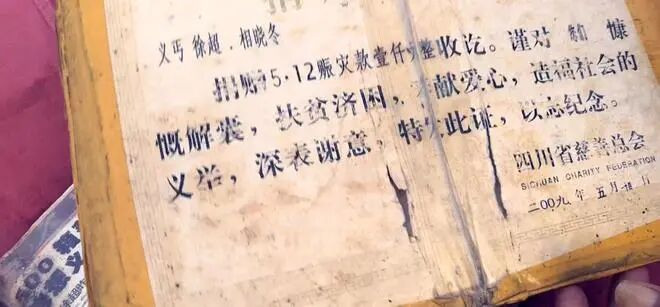 义丐 徐超 . 相晓冬
捐赠5·12赈灾款壹仟 整收讫。谨对 慷
慨解囊，扶贫济困，奉献爱心，造福社会的
义举，深表谢意，特发此证，以志纪念。
四川省慈善总会
SICHUAN CHARITY FEDERATION
二00九年五月 日
500